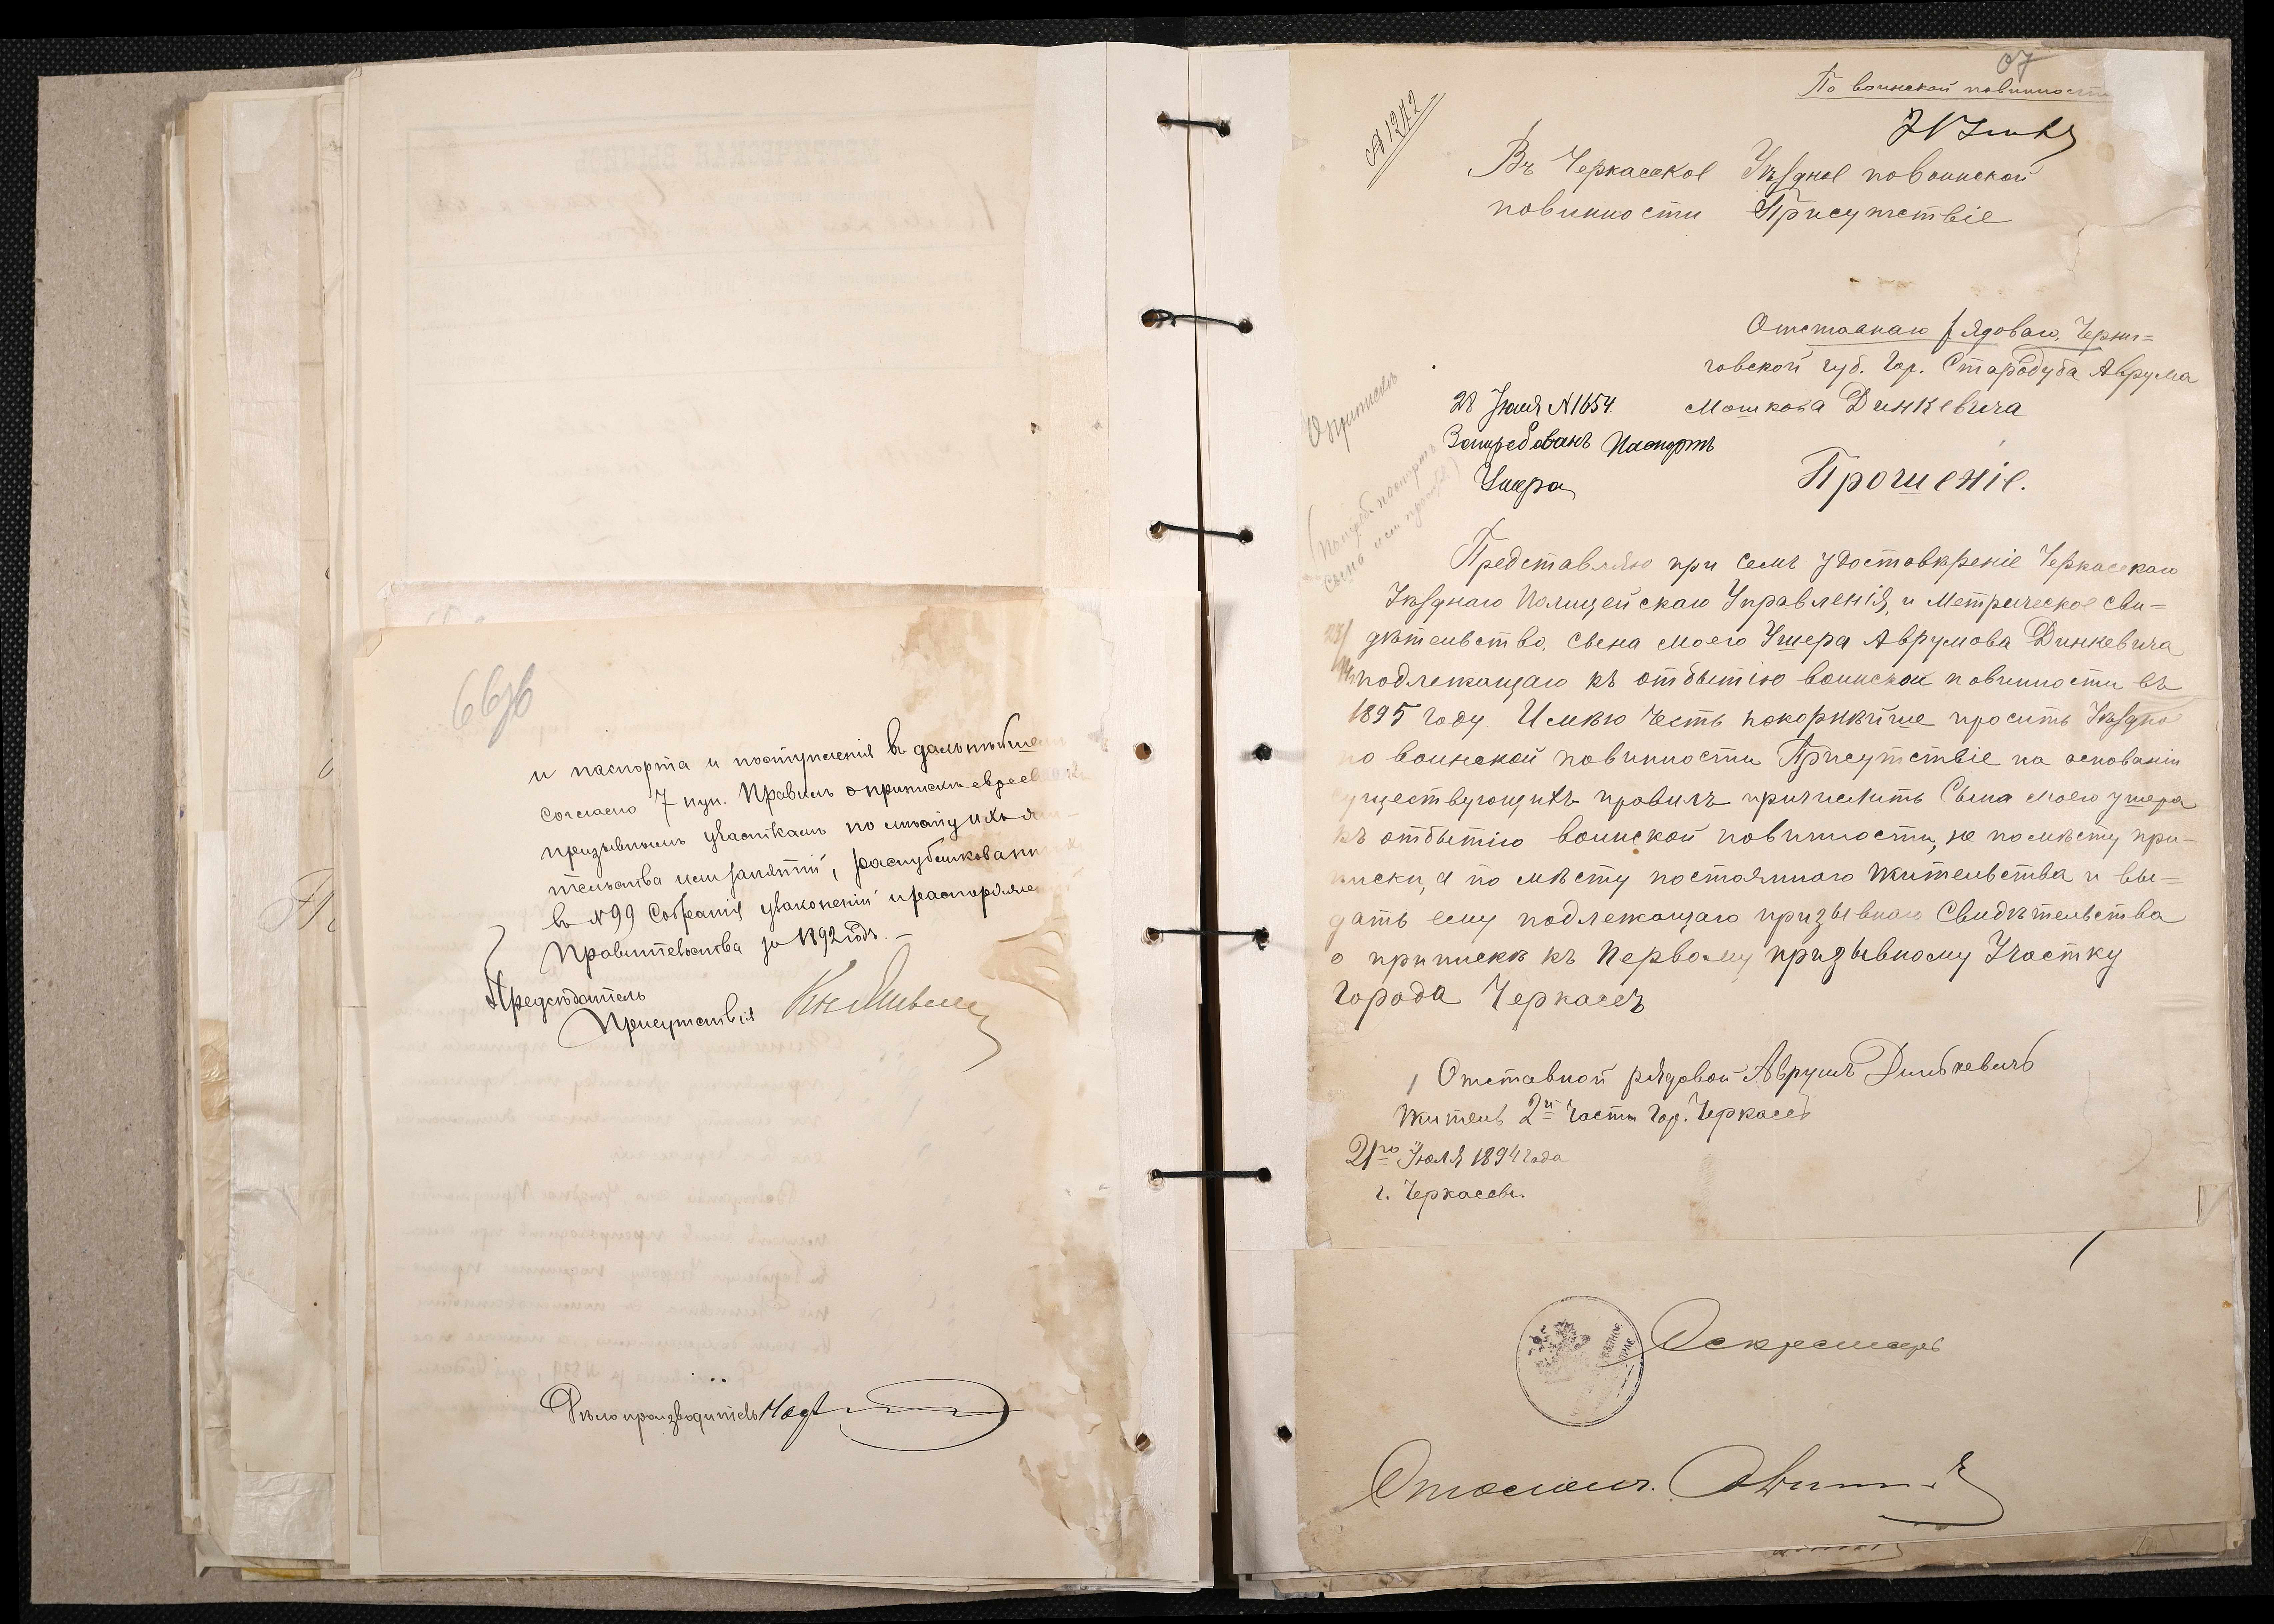 и паспорта и поступленія въ дальнѣйшем
согласно 7 пун. Правилъ о припискѣ евреевъ къ
призывнымъ участкамъ по мѣсту ихъ жи-
тельства или занятій, распубликованны
въ №99 Собранія узаконеній и распоряже
Правительства за 1892 годъ.
Предсѣдатель
Присутствія
Дѣлопроизводитель
По воинской повинности
№ 1242
Въ Черкасское Уѣздное по воинской
повинности Присутствіе
Отставнаго рядоваго, Черни=
говской губ. Гор. Стародуба Аврума
Мошкова Динкевича
28 Іюля №1654.
Затребованъ Паспортъ
Ушера
О припискѣ
Прошеніе.
Представляю при семъ удостовѣреніе Черкасскаго
Уѣзднаго Полицейскаго Управленія, и Метрическое сви=
дѣтельство, сына моего Ушера Аврумова Динкевича
подлежащаго къ отбытію воинской повинности въ
1895 году. Имѣю честь покорнѣйше просить Уѣздное
по воинской повинности Присутствіе на основаніи
существующихъ правилъ причислить Сына моего Ушера
къ отбытію воинской повинности, не по мѣсту при-
писки, а по мѣсту постояннаго жительства и вы=
дать ему подлежащаго призывнаго Свидѣтельства
о припискѣ къ Первому призывному Участку
города Черкасъ
Отставной рядовой Аврумъ Динкевичъ
житель 2й части Гор. Черкасъ
21го Іюля 1894 года
г. Черкассы.
Секретарь